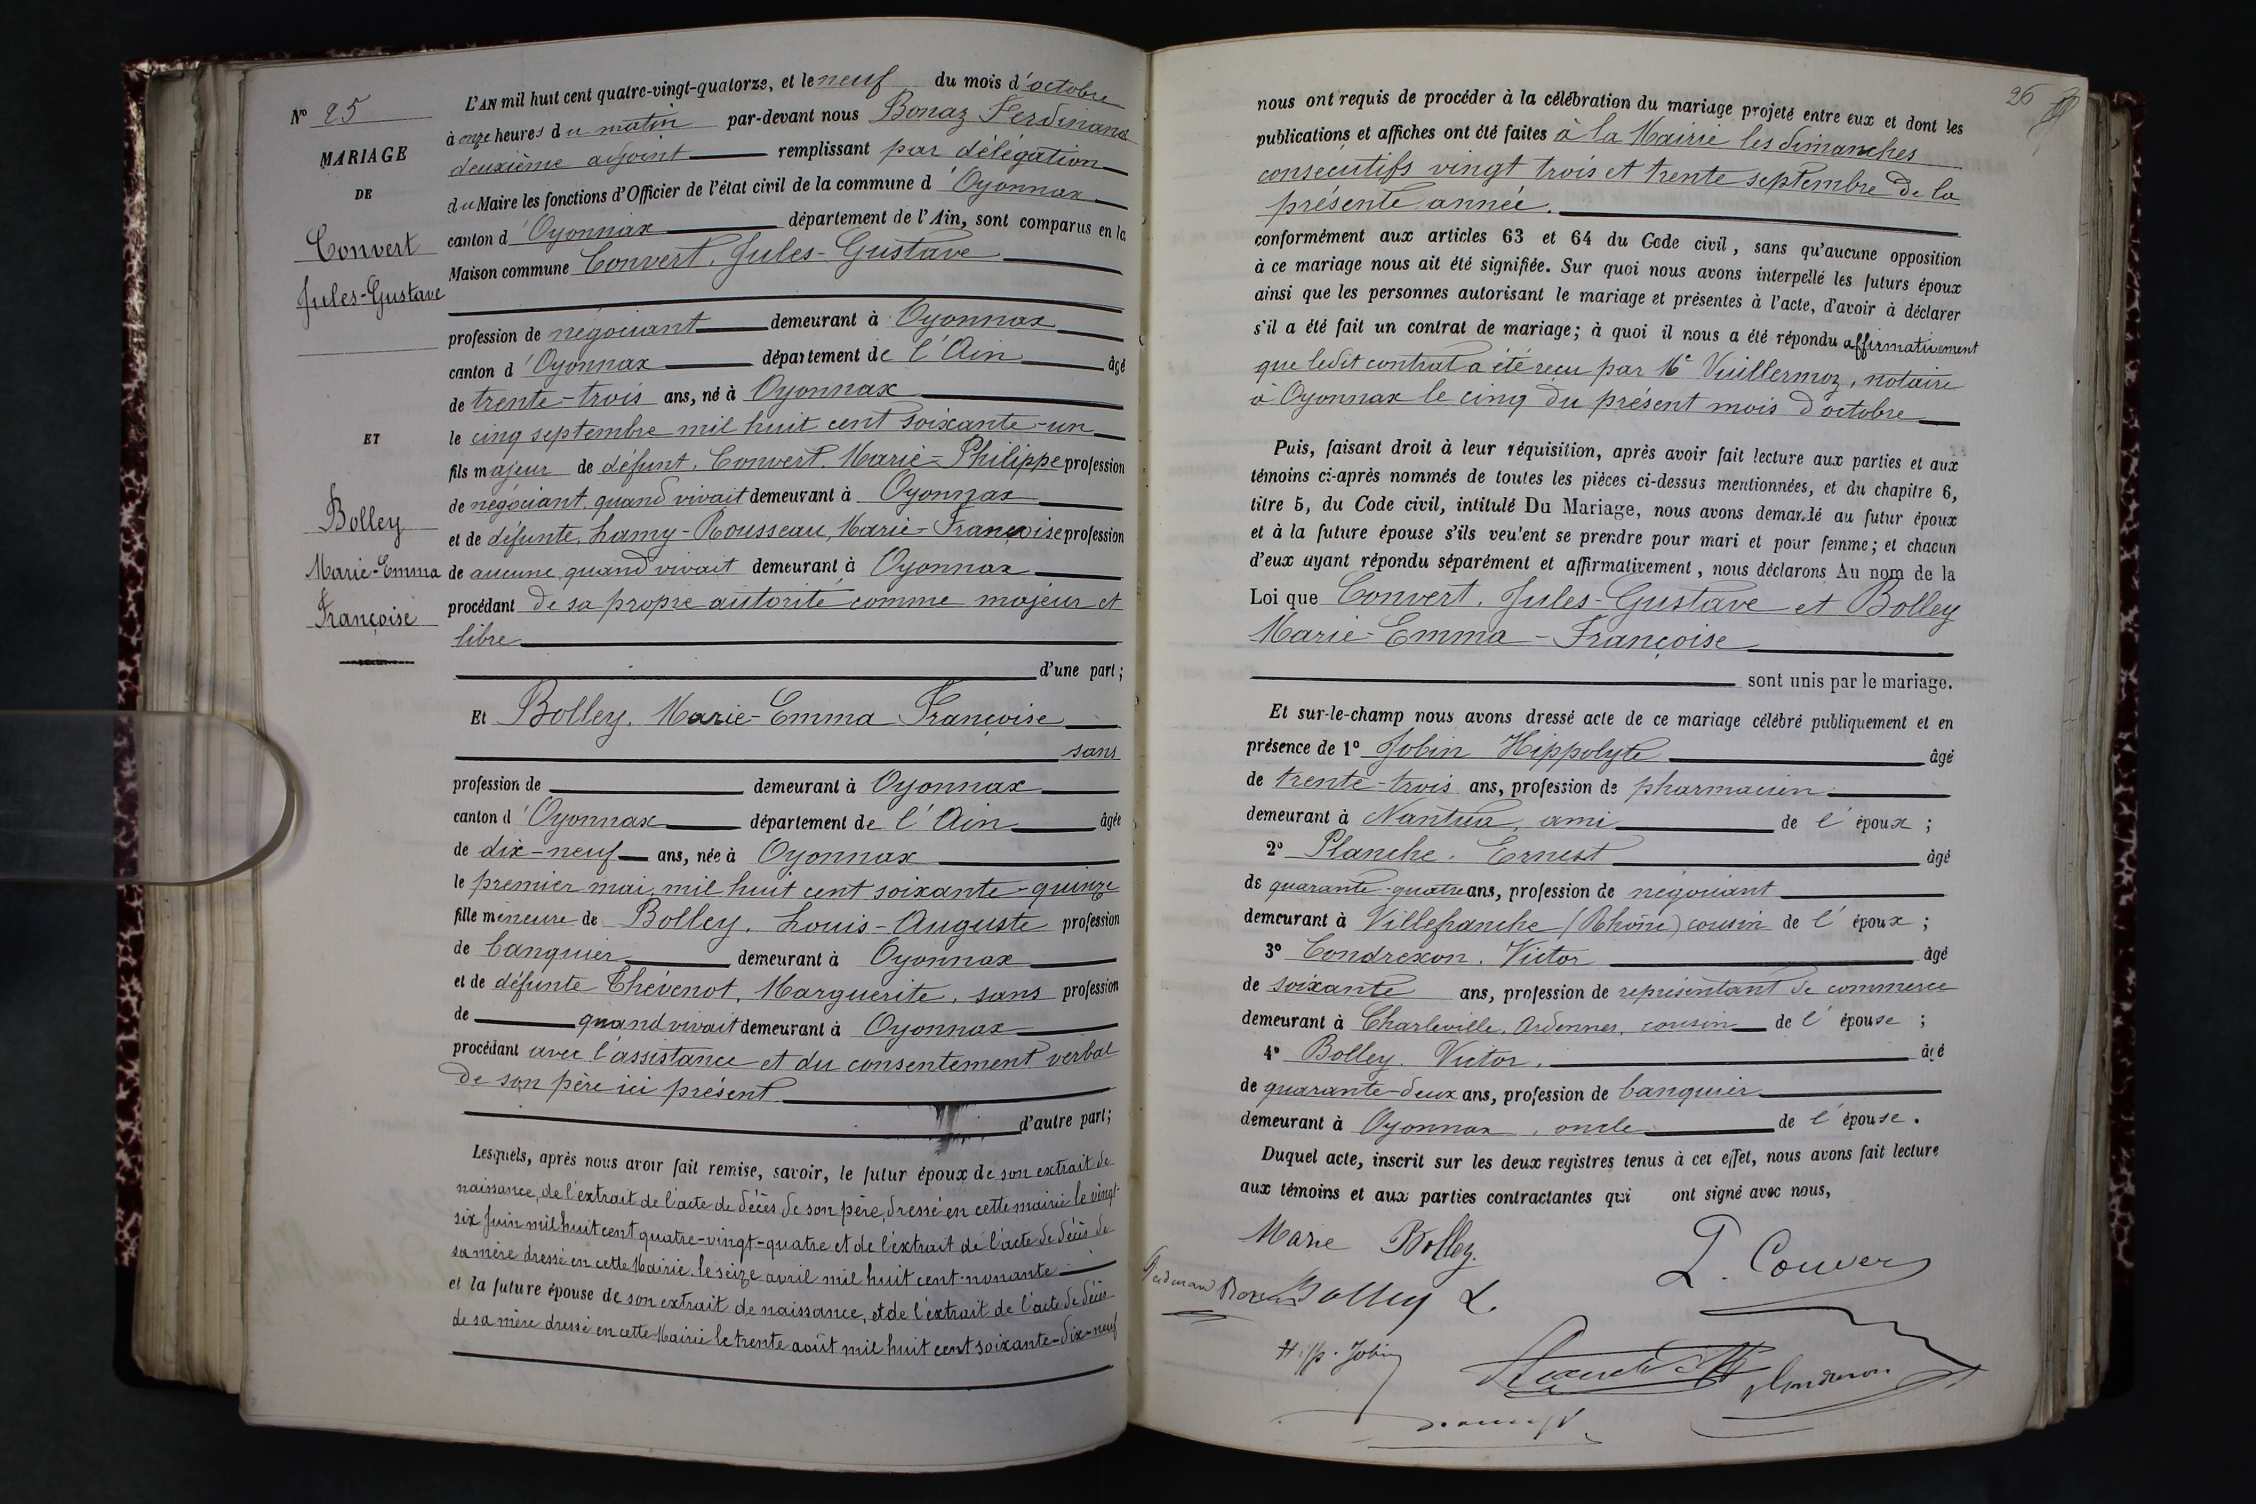 N° 25
MARIAGE
DE
Convert
Jules-Gustave
ET
Bolley
Marie-Emma
Françoise
L'AN mil huit cent quatre-vingt-quatorze, et le neuf du mois d'octobre
à onze heures du matin par-devant nous Bonaz Ferdinand
deuxième adjoint remplissant par délégation
du Maire les fonctions d'Officier de l'état civil de la commune d'Oyonnax
canton d'Oyonnax département de l'Ain, sont comparus en la
Maison commune Convert, Jules-Gustave
profession de négociant demeurant à Oyonnax
canton d'Oyonnax département de l'Ain âgé
de trente-trois ans, né à Oyonnax
le cinq septembre mil huit cent soixante-un
fils majeur de défunt, Convert, Marie-Philippe profession
de négociant, quand vivait demeurant à Oyonnax
et de défunte, Lamy-Rousseau, Marie-Françoise profession
de aucune, quand vivait demeurant à Oyonnax
procédant de sa propre autorité comme majeur et
libre
d'une part;
Et Bolley, Marie-Emma Françoise
sans
profession de demeurant à Oyonnax
canton d'Oyonnax département de l'Ain âgée
de dix-neuf ans, née à Oyonnax
le premier mai, mil huit cent soixante-quinze
fille mineure de Bolley, Louis-Auguste profession
de banquier demeurant à Oyonnax
et de défunte Thévenot, Marguerite, sans profession
de quand vivait demeurant à Oyonnax
procédant avec l'assistance et du consentement verbal
de son père ici présent
d'autre part;
Lesquels, après nous avoir fait remise, savoir, le futur époux de son extrait de
naissance, de l'extrait de l'acte de décès de son père, dressé en cette mairie le vingt-
six Juin mil huit cent quatre-vingt-quatre et de l'extrait de l'acte de décès de
sa mère dressé en cette Mairie, le seize avril mil huit cent-nonante
et la future épouse de son extrait de naissance, et de l'extrait de l'acte de décès
de sa mère dressé en cette Mairie le trente août mil huit cent soixante-dix-neuf
26
nous ont requis de procéder à la célébration du mariage projeté entre eux et dont les
publications et affiches ont été faites à la Mairie les dimanches
consécutifs vingt trois et trente septembre de la
présente année.
conformément aux articles 63 et 64 du Code civil, sans qu'aucune opposition
à ce mariage nous ait été signifiée. Sur quoi nous avons interpellé les futurs époux
ainsi que les personnes autorisant le mariage et présentes à l'acte, d'avoir à déclarer
s'il a été fait un contrat de mariage; à quoi il nous a été répondu affirmativement
que ledit contrat a été reçu par Me Vuillermoz, notaire
à Oyonnax le cinq du présent mois d'octobre
Puis, faisant droit à leur réquisition, après avoir fait lecture aux parties et aux
témoins ci-après nommés de toutes les pièces ci-dessus mentionnées, et du chapitre 6,
titre 5, du Code civil, intitulé Du Mariage, nous avons demandé au futur époux
et à la future épouse s'ils veulent se prendre pour mari et pour femme; et chacun
d'eux ayant répondu séparément et affirmativement, nous déclarons Au nom de la
Loi que Convert, Jules-Gustave et Bolley
Marie-Emma-Françoise
sont unis par le mariage.
Et sur-le-champ nous avons dressé acte de ce mariage célébré publiquement et en
présence de 1° Jobin Hippolyte âgé
de trente-trois ans, profession de pharmacien
demeurant à Nantua, ami de l'époux;
2° Planche, Ernest âgé
de quarante-quatre ans, profession de négociant
demeurant à Villefranche (Rhône) cousin de l'époux;
3° Condrexon, Victor âgé
de soixante ans, profession de représentant de commerce
demeurant à Charleville, Ardennes, cousin de l'épouse;
4° Bolley, Victor, âgé
de quarante-deux ans, profession de banquier
demeurant à Oyonnax, oncle de l'épouse.
Duquel acte, inscrit sur les deux registres tenus à cet effet, nous avons fait lecture
aux témoins et aux parties contractantes qui ont signé avec nous,
Marie Bolley
Convert
Ferdinand Bonaz
Bolley L.
Hipp. Jobin